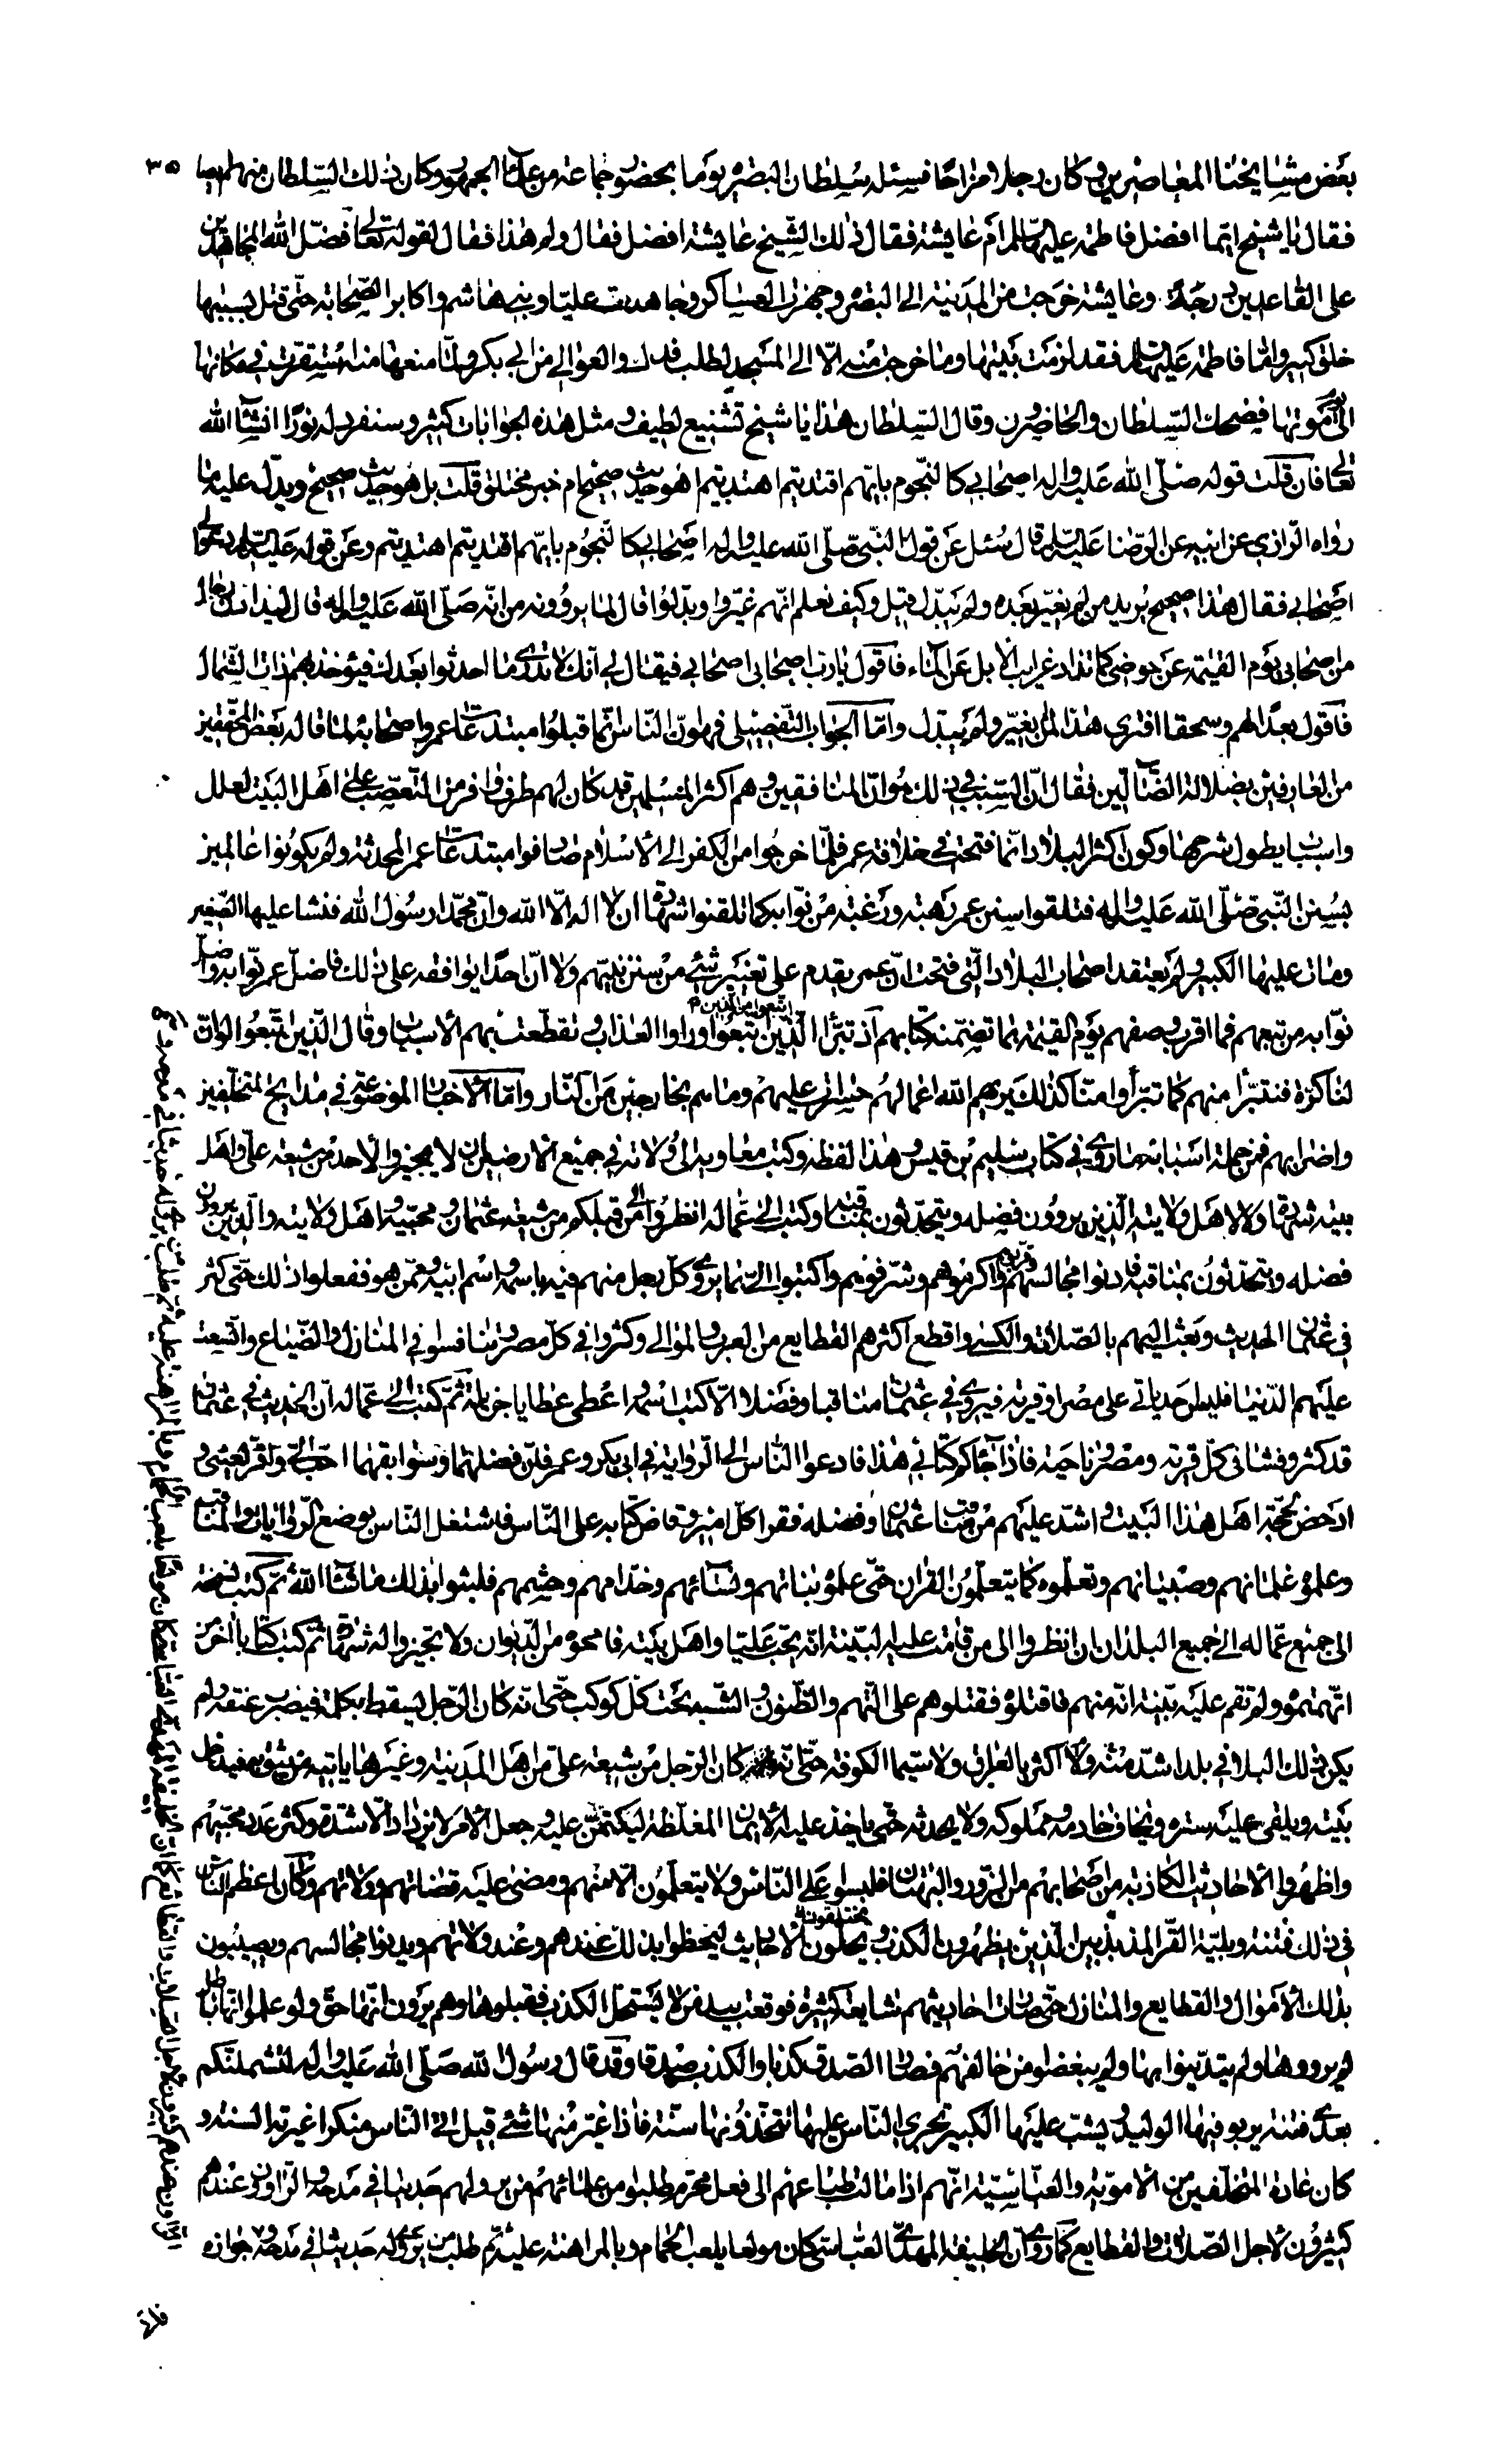 ٣٥
بعض مشايخنا المعاصرين وكان رجلا مزاحا فسئله سلطان البصرة يوما بحضور جماعة من علماء الجمهور وكان ذلك السلطان منهم ايضا
فقال يا شيخ ايما افضل فاطمة عليها السلم ام عايشة فقال ذلك الشيخ عايشة افضل فقال ولم هذا فقال لقوله تعالى فضل الله المجاهدين
على القاعدين درجة وعايشة خرجت من المدينة الى البصرة وجهزت العساكر وجاهدت عليا وبني هاشم واكابر الصحابة حتى قتل بسببها
خلق كبير واما فاطمة عليها السلم فقد لزمت بيتها وما خرجت منه الا الى المسجد لطلب فدك والعوالي من ابي بكر ولما منعها منه استقرت في مكانها
الى يوم موتها فضحك السلطان والحاضرون وقال السلطان هذا يا شيخ تشنيع لطيف ومثل هذه الجوابات كثير وسنفرد له نورا انشاء الله
تعالى فان قلت قوله صلى الله عليه واله اصحابي كالنجوم بايهم اقتديتم اهتديتم اهو حديث صحيح ام خبر مختلق قلت بل هو حديث صحيح ويدل عليه ما
رواه الرازي عن ابيه عن الرضا عليه السلم قال سئل عن قول النبي صلى الله عليه واله اصحابي كالنجوم بايهم اقتديتم اهتديتم وعن قوله عليه السلم دعوا لي
اصحابي فقال هذا صحيح يريد من لم يغير بعده ولم يبدل قيل وكيف نعلم انهم غيروا وبدلوا قال لما يروونه من انه صلى الله عليه واله قال ليذادن رجال
من اصحابي يوم القيمة عن حوضي كما تذاد غرايب الابل عن الماء فاقول يا رب اصحابي اصحابي فيقال لي انك لا تدري ما احدثوا بعدك فيؤخذ بهم ذات الشمال
فاقول بعدا لهم وسحقا افترى هذا لمن لم يغير ولم يبدل واما الجواب التفصيلي فهو ان الناس انما قبلوا مبتدعات عمر واصحابه لما قاله بعض المحققين
من العارفين بضلالة الضالين فقال ان السبب في ذلك هو ان المنافقين وهم اكثر المسلمين قد كان لهم طرف وافر من التعصب على اهل البيت لعلل
واسباب يطول شرحها وكون اكثر البلاد انما فتحت في خلافة عمر فلما خرجوا من الكفر الى الاسلام صادفوا مبتدعات عمر المحدثة ولم يكونوا عالمين
بسنن النبي صلى الله عليه واله فتلقوا سنن عمر رهبة ورغبة من نوابه كما تلقنوا شهادة ان لا اله الا الله وان محمدا رسول الله فنشا عليها الصغير
ومات عليها الكبير ولم يعتقد اصحاب البلاد التي فتحت ان عمر يقدم على تغيير شئ من سنن نبيهم ولا ان احدا يوافقه على ذلك فاضل عمر نوابه واضل
نوابه من تبعهم فما اقرب وصفهم يوم القيمة بما تضمنه كتابهم اذ تبرأ الذين اتبعوا من الذين اتبعوا وراوا العذاب وتقطعت بهم الاسباب وقال الذين اتبعوا لو ان
لنا كرة فنتبرأ منهم كما تبرأوا منا كذلك يريهم الله اعمالهم حسرات عليهم وما هم بخارجين من النار واما الاخبار الموضوعة في مدايح المتخلفين
واضرابهم فمن جملة اسبابه ما روي في كتاب سليم بن قيس وهذا لفظه وكتب معاوية الى ولاته في جميع الارضين ان لا يجيزوا لاحد من شيعة علي واهل
بيته شهادة ولا لاهل ولايته الذين يروون فضله ويتحدثون بمناقبه وكتب الى عماله انظروا الى من قبلكم من شيعة عثمان ومحبيه واهل ولايته والذين يروون
فضله ويتحدثون بمناقبه فادنوا مجالسهم وقربوهم واكرموهم وشرفوهم واكتبوا الي بما يروي كل رجل منهم فيه باسمه واسم ابيه وممن هو ففعلوا ذلك حتى كثر
في عثمان الحديث وبعث اليهم بالصلات والكسى واقطع اكثرهم القطايع من العرب والموالي وكثروا في كل مصر وتنافسوا في المنازل والضياع واتسعت
عليهم الدنيا فليس احد ياتي على مصر او قرية فيروي في عثمان مناقبا وفضلا الا كتب اسمه واعطى عطايا جزيلة ثم كتب الى عماله ان الحديث في عثمان
قد كثر وفشا في كل قرية ومصر وناحية فاذا جاءكم كتابي هذا فادعوا الناس الى الرواية في ابي بكر وعمر فان فضلهما وسوابقهما احب الي واقر لعيني و
ادحض لحجة اهل هذا البيت واشد عليهم من مناقب عثمان وفضله فقرا كل امير وقاض كتابه على الناس فاشتغل الناس بوضع الروايات والمناقب
وعلموه غلمانهم وصبيانهم وتعلموه كما يتعلمون القران حتى علموه بناتهم ونسائهم وخدامهم وحشمهم فلبثوا بذلك ما شاء الله ثم كتب نسخة
الى جميع عماله الى جميع البلدان ان انظروا الى من قامت عليه البينة انه يحب عليا واهل بيته فامحوه من الديوان ولا تجيزوا له شهادة ثم كتب كتابا اخر من
اتهمتموه ولم تقم عليه بينة انه منهم فاقتلوه فقتلوهم على التهم والظنون والشبه تحت كل كوكب حتى انه كان الرجل ليسقط بكلمة فيضرب عنقه ولم
يكن ذلك البلاء في بلد اشد منه ولا اكثر بالعراق ولا سيما الكوفة حتى انه كان الرجل من شيعة علي من اهل المدينة وغيرها ياتيه من يثق به فيدخل
بيته ويلقي عليه ستره ويخاف خادمه ومملوكه ولا يحدثه حتى ياخذ عليه الايمان المغلظة ليكتمن عليه وجعل الامر لا يزداد الا شدة وكثر عدد محبيهم
واظهروا الاحاديث الكاذبة من اصحابهم من الزور والبهتان فلبسوا على الناس ولا يتعلمون الا منهم ومضى عليه قضاتهم وولاتهم وكان اعظم الناس
في ذلك فتنة وبلية القراء المذبذبين الذين يظهرون الكذب ويختلقون الاحاديث ليحظوا بذلك عندهم وعند ولاتهم ويدنوا مجالسهم ويصيبون
بذلك الاموال والقطايع والمنازل حتى صارت احاديثهم شايعة كثيرة فوقعت بيد من لا يستحل الكذب فقبلوها وهم يرون انها حق ولو علموا انها باطل
لم يرووها ولم يتدينوا بها ولم يبغضوا من خالفهم فصار الصدق كذبا والكذب صدقا وقد قال رسول الله صلى الله عليه واله لتشملنكم
بعدي فتنة يربو فيها الوليد ويشب عليها الكبير تجري الناس عليها تتخذونها سنة فاذا غير منها شئ قيل اتى الناس منكرا غيرت السنة و
كان عادة المتخلفين من الاموية والعباسية انهم اذا مالت طباعهم الى فعل محرم طلبوا من علمائهم من يروي لهم حديثا في مدحه والراوون عندهم
كثيرون لاجل الصلات والقطايع كما روي ان الخليفة المهدي العباسي كان مولعا بلعب الحمام وبالمراهنة عليه ثم طلب من يروي له حديثا في مدحه وجوازه